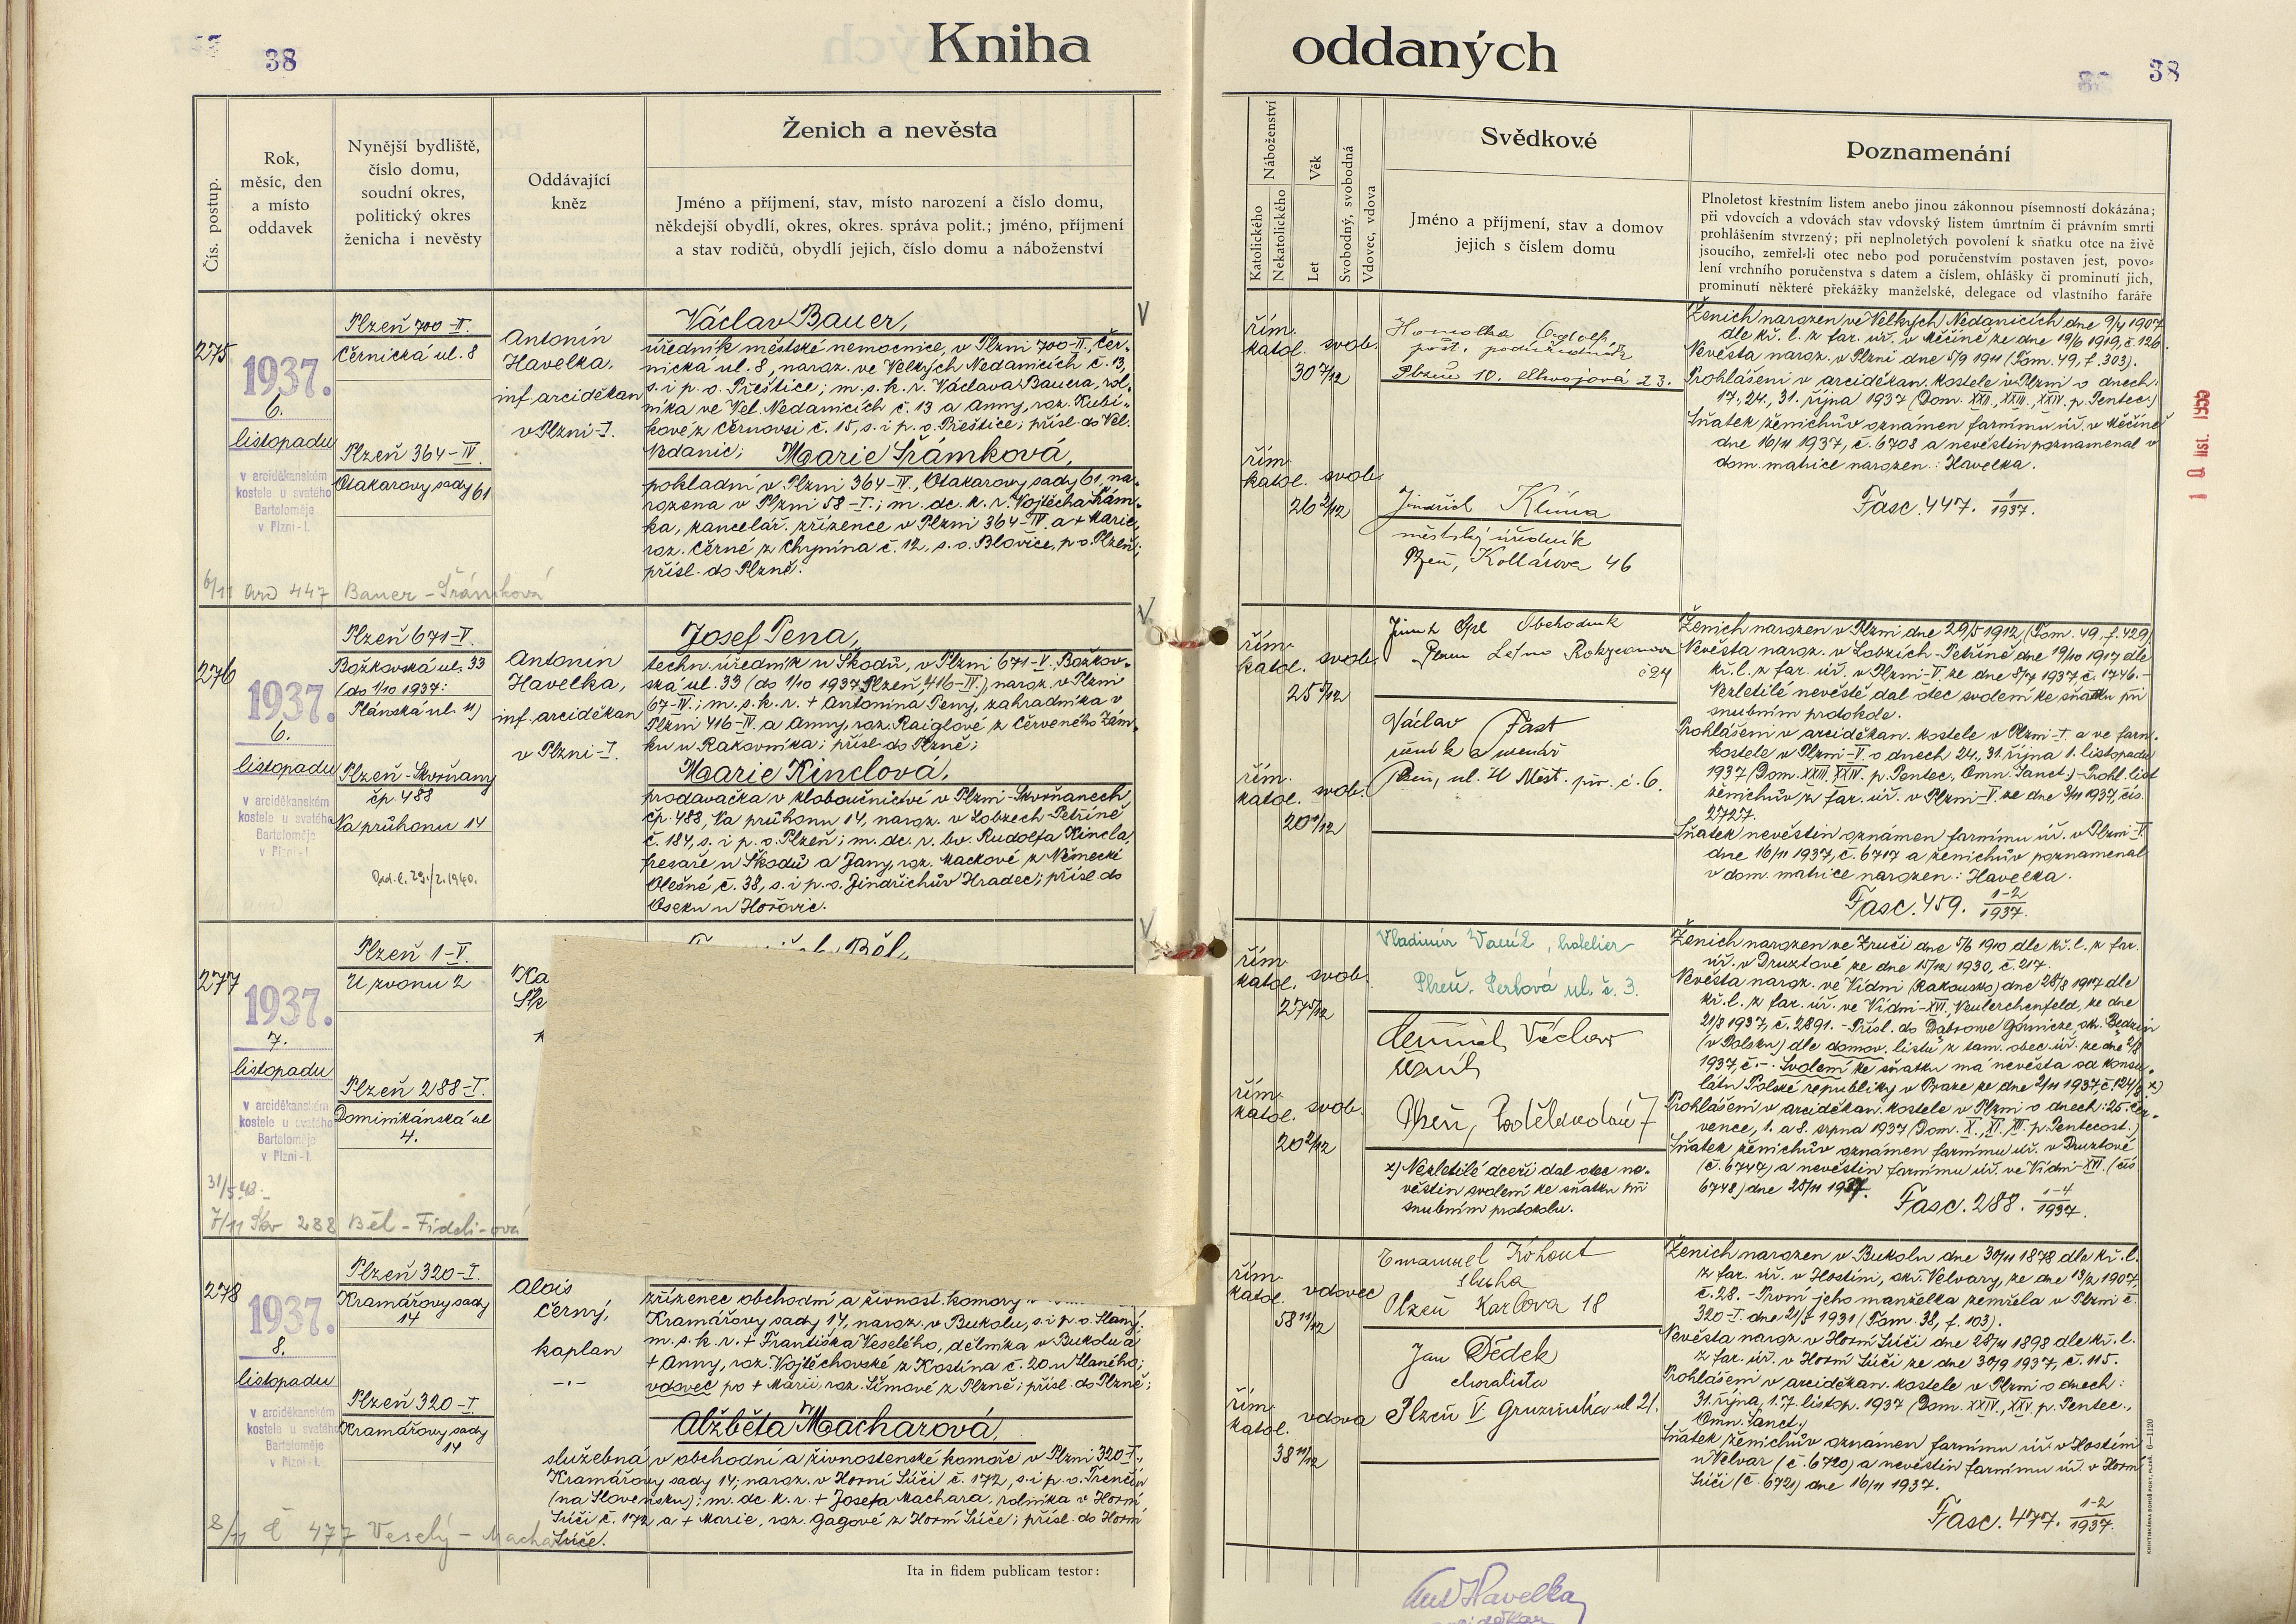 38
Kniha
oddaných
38
Čís. postup.
Rok,
měsíc, den
a místo
oddavek
Nynější bydliště,
číslo domu,
soudní okres,
politický okres
ženicha i nevěsty
Oddávající
kněz
Ženich a nevěsta
Jméno a příjmení, stav, místo narození a číslo domu,
někdejší obydlí, okres, okres. správa polit.; jméno, příjmení
a stav rodičů, obydlí jejich, číslo domu a náboženství
Náboženství
Katolického
Nekatolického
Věk
Let
Svobodný, svobodná
Vdovec, vdova
Svědkové
Jméno a příjmení, stav a domov
jejich s číslem domu
Poznamenání
Plnoletost křestním listem anebo jinou zákonnou písemností dokázána;
při vdovcích a vdovách stav vdovský listem úmrtním či právním smrti
prohlášením stvrzený; při neplnoletých povolení k sňatku otce na živě
jsoucího, zemřel-li otec nebo pod poručenstvím postaven jest, povo-
lení vrchního poručenstva s datem a číslem, ohlášky či prominutí jich,
prominutí některé překážky manželské, delegace od vlastního faráře
275
1937.
6.
listopadu
v arciděkanském
kostele u svatého
Bartoloměje
v Plzni-I.
Plzeň 700-II.
Černická ul. 8
Plzeň 364-IV.
Otakarovy sady 61
Antonín
Havelka,
inf. arciděkan
v Plzni-I.
Václav Bauer,
úředník městské nemocnice, v Plzni 700-II., Čer-
nická ul. 8, naroz. ve Velkých Nedanicích č. 13,
s. i p. o. Přeštice; m. s. k. r. Václava Bauera, rol-
níka ve Vel. Nedanicích č. 13 a Anny, roz. Kubí-
kové z Černovsi č. 15, s. i p. o. Přeštice; přísl. do Vel.
Nedanic; Marie Šrámková,
pokladní v Plzni 364-IV., Otakarovy sady 61, na-
rozena v Plzni 58-I.; m. dc. k. r. Vojtěcha Šrám-
ka, kancelář. zřízence v Plzni 364-IV. a + Marie,
roz. Černé z Chynína č. 12, s. o. Blovice, p. o. Plzeň;
přísl. do Plzně.
6/11 447 Bauer - Šrámková
řím.
katol. svob.
30 7/12
řím.
katol. svob.
26 2/12
Homolka
Plzeň 10.
Jindřich Klíma
městský úředník
Plzeň, Kollárova 46
Ženich narozen ve Velkých Nedanicích dne 9/4 1907
dle kř. l. z far. úř. v Měčíně ze dne 19/6 1919, č. 126.
Nevěsta naroz. v Plzni dne 5/9 1911 (Tom. 49, f. 303).
Prohlášeni v arciděkan. kostele v Plzni o dnech:
17., 24., 31. října 1937 (Dom. XXII., XXIII., XXIV. p. Pentec.)
Sňatek ženichův oznámen farnímu úř. v Měčíně
dne 16/11 1937, č. 6708 a nevěstin poznamenal v
dom. matrice narozen.: Havelka.
Fasc. 447. 1/1937.
276
1937.
6.
listopadu
v arciděkanském
kostele u svatého
Bartoloměje
v Plzni-I.
Plzeň 671-V.
Božkovská ul. 33
(do 1/10 1937:
Plánská ul. 11)
Plzeň-Skvrňany
čp. 488
Na průhonu 14
Antonín
Havelka,
inf. arciděkan
v Plzni-I.
Josef Pena,
techn. úředník u Škodů, v Plzni 671-V. Božkov-
ská ul. 33 (do 1/10 1937 Plzeň, 416-IV.), naroz. v Plzni
67-IV.; m. s. k. r. + Antonína Peny, zahradníka v
Plzni 416-IV. a Anny, roz. Raiglové z Červeného Zám-
ku u Rakovníka; přísl. do Plzně;
Marie Kinclová,
prodavačka v kloboučnictví v Plzni-Skvrňanech
čp. 488, Na průhonu 14, naroz. v Lobzech-Petříně
č. 184, s. i p. o. Plzeň; m. dc. r. bv. Rudolfa Kincla,
fresaře u Škodů a Jany, roz. Mackové z Německé
Olešné č. 38, s. i p. o. Jindřichův Hradec; přísl. do
Oseku u Hořovic.
řím.
katol. svob.
25 5/12
řím.
katol. svob.
20 0/12
Obchodník
Plzeň Letná Rokycanova
č 24
Václav Fast
Plzeň, ul. č. 6.
Ženich narozen v Plzni dne 29/5 1912 (Tom. 49, f. 429).
Nevěsta naroz. v Lobzích-Petříně dne 19/10 1917 dle
kř. l. z far. úř. v Plzni-V. ze dne 8/7 1937, č. 1746.-
Nezletilé nevěstě dal otec svolení ke sňatku při
snubním protokole.
Prohlášeni v arciděkan. kostele v Plzni-I. a ve farn.
kostele v Plzni-V. o dnech 24., 31. října 1. listopadu
1937 (Dom. XXIII., XXIV. p. Pentec., Omn. Sanct.)-Prohl. list
ženichův z far. úř. v Plzni-V. ze dne 3/11 1937, čís.
2727.
Sňatek nevěstin oznámen farnímu úř. v Plzni-V.
dne 16/11 1937, č. 6717 a ženichův poznamenal
v dom. matrice narozen.: Havelka.
Fasc. 459. 1-2/1937.
277
1937.
7.
listopadu
v arciděkanském
kostele u svatého
Bartoloměje
v Plzni-I.
Plzeň 1-V.
U zvonu 2
Plzeň 288-I.
Dominikánská ul.
4.
Běl,
7/11 288 Běl - Fideli-ová
řím.
katol. svob.
27 5/12
řím.
katol. svob.
20 2/12
Vladimír Vaněk, hotelier
Plzeň, Perlová ul. č. 3.
Václav
Plzeň, Poděbradova 7
x) Nezletilé dceři dal otec ne-
věstin svolení ke sňatku při
snubním protokolu.
Ženich narozen ve Zruči dne 5/6 1910 dle kř. l. z far.
úř. v Druztové ze dne 15/12 1930, č. 217.
Nevěsta naroz. ve Vídni (Rakousko) dne 28/8 1917 dle
kř. l. z far. úř. ve Vídni-XVI., Neulerchenfeld, ze dne
21/8 1937, č. 2891. - Přísl. do Dąbrowe Górnicze, ok. Będzin
(v Polsku) dle domov. listu z tam. obec. úř. ze dne 2/8
1937, č. -. Svolení ke sňatku má nevěsta od konsu-
látu Polské republiky v Praze ze dne 2/11 1937 č. 124/8. x)
Prohlášeni v arciděkan. kostele v Plzni o dnech: 25. čer-
vence, 1. a 8. srpna 1937 (Dom. X., XI., XII. p. Pentecost.)
Sňatek ženichův oznámen farnímu úř. v Druztové
(č. 6747) a nevěstin farnímu úř. ve Vídni-XVI. (čís.
6748) dne 25/11 1937.
Fasc. 288. 1-4/1937.
278
1937.
8.
listopadu
v arciděkanském
kostele u svatého
Bartoloměje
v Plzni-I.
Plzeň 320-I.
Kramářovy sady
14
Plzeň 320-I.
Kramářovy sady
14
Alois
Černý,
kaplan
zřízenec obchodní a živnost. komory
Kramářovy sady 14, naroz. v Bukolu, s. i p. o. Slaný;
m. s. k. r. + Františka Veselého, dělníka v Bukolu a
+ Anny, roz. Vojtěchovské z Kostína č. 20 u Slaného;
vdovec po + Marii, roz. Šímové z Plzně; přísl. do Plzně;
Alžběta Macharová,
služebná v obchodní a živnostenské komoře v Plzni 320-I.,
Kramářovy sady 14; naroz. v Horní Súči č. 172, s. i p. o. Trenčín
(na Slovensku); m. dc. k. r. + Josefa Machara, rolníka v Horní
Súči č. 172 a + Marie, roz. Gagové z Horní Súče; přísl. do Horní
Súče.
8/11 Č 477 Veselý - Macha
řím.
katol. vdovec
58 11/12
řím.
katol. vdova
38 11/12
Emanuel Kohout
sluha
Plzeň Karlova 18
Jan Dědek
choralista
Plzeň V Gruzínská ul 21.
Ženich narozen v Bukolu dne 30/11 1878 dle kř. l.
z far. úř. v Hostíni, okr. Velvary, ze dne 13/2 1907,
č. 28. - První jeho manželka zemřela v Plzni č.
320-I. dne 21/5 1931 (Tom. 38, f. 103).
Nevěsta naroz. v Horní Súči dne 28/11 1898 dle kř. l.
z far. úř. v Horní Súči ze dne 30/9 1937, č. 115.
Prohlášeni v arciděkan. kostele v Plzni o dnech:
31. října, 1. 7. listop. 1937 (Dom. XXIV., XXV. p. Pentec.,
Omn. Sanct.)
Sňatek ženichův oznámen farnímu úř. v Hostíni
u Velvar (č. 6720) a nevěstin farnímu úř. v Horní
Súči (č. 6721) dne 16/11 1937.
Fasc. 477. 1-2/1937.
Ita in fidem publicam testor:
Ant Havelka
arciděkan